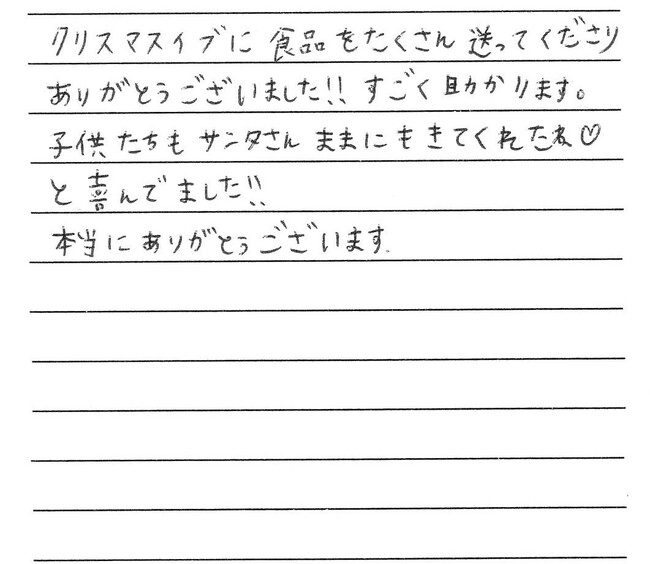 クリスマスイブに 食品をたくさん 送ってくださり
ありがとうございました!! すごく助かります。
子供たちも サンタさん ままにもきてくれたね♡
と喜んでました!!
本当にありがとうございます.